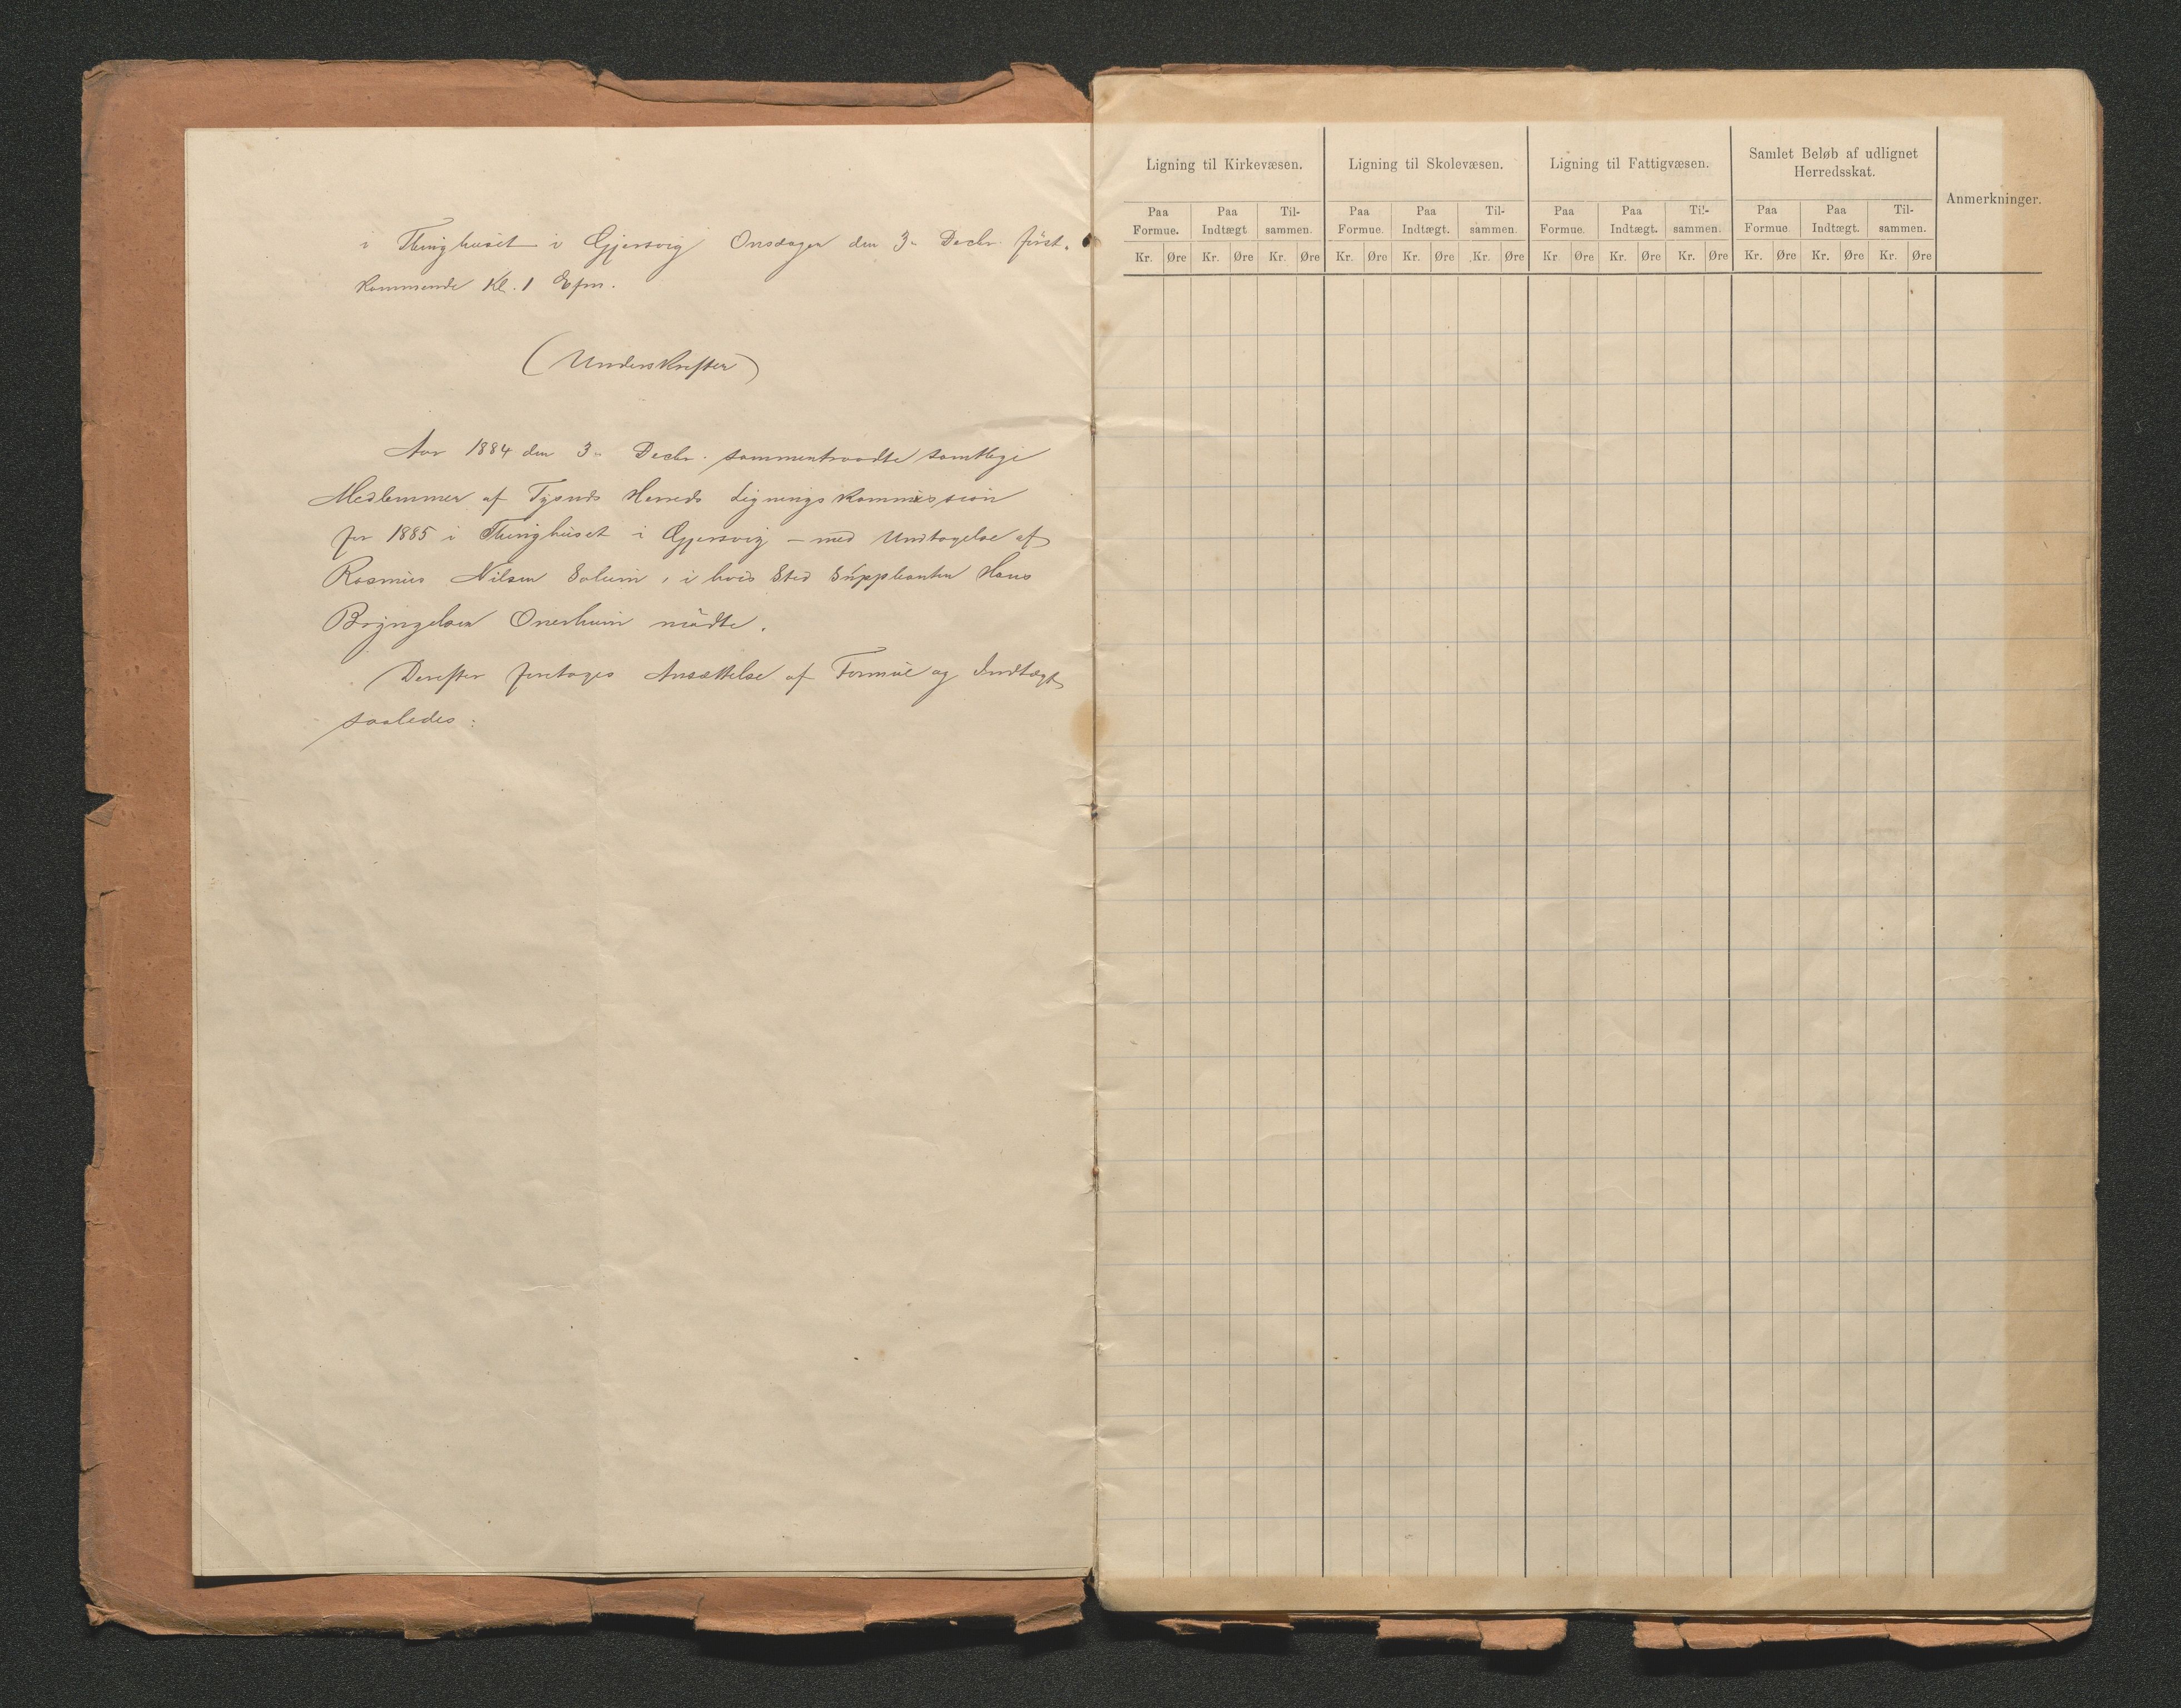 i Thinghuset i Gjersvig Onsdagen den 3. Decbr. först.
kommende Kl. 1 Efm.
(Underskrifter)
Aar 1884 den 3. Decbr. sammentraadte samtlige
Medlemmer af Tysnds Herreds Ligningskommission
for 1885 i Thinghuset i Gjersvig – med Undtagelse af
Rasmus Nilsen Solum, i hvis Sted Suppleanten Hans
Bryngelsen Onerheim mödte.
Derefter foretoges Ansættelse af Formue og Indtægt
saaledes:
Ligning til Kirkevæsen. Ligning til Skolevæsen. Ligning til Fattigvæsen. Samlet Beløb af udlignet Herredsskat. Anmerkninger.
Paa Formue. Paa Indtægt Til-sammen. Paa Formue. Paa Indtægt. Til-sammen. Paa Formue. Paa Indtægt. Til-sammen. Paa Formue Paa Indtægt. Til-sammen.
Kr. Øre Kr. Øre Kr. Øre Kr. Øre Kr. Øre Kr. Øre Kr Øre Kr. Øre Kr. Øre Kr. Øre Kr. Øre Kr. Øre